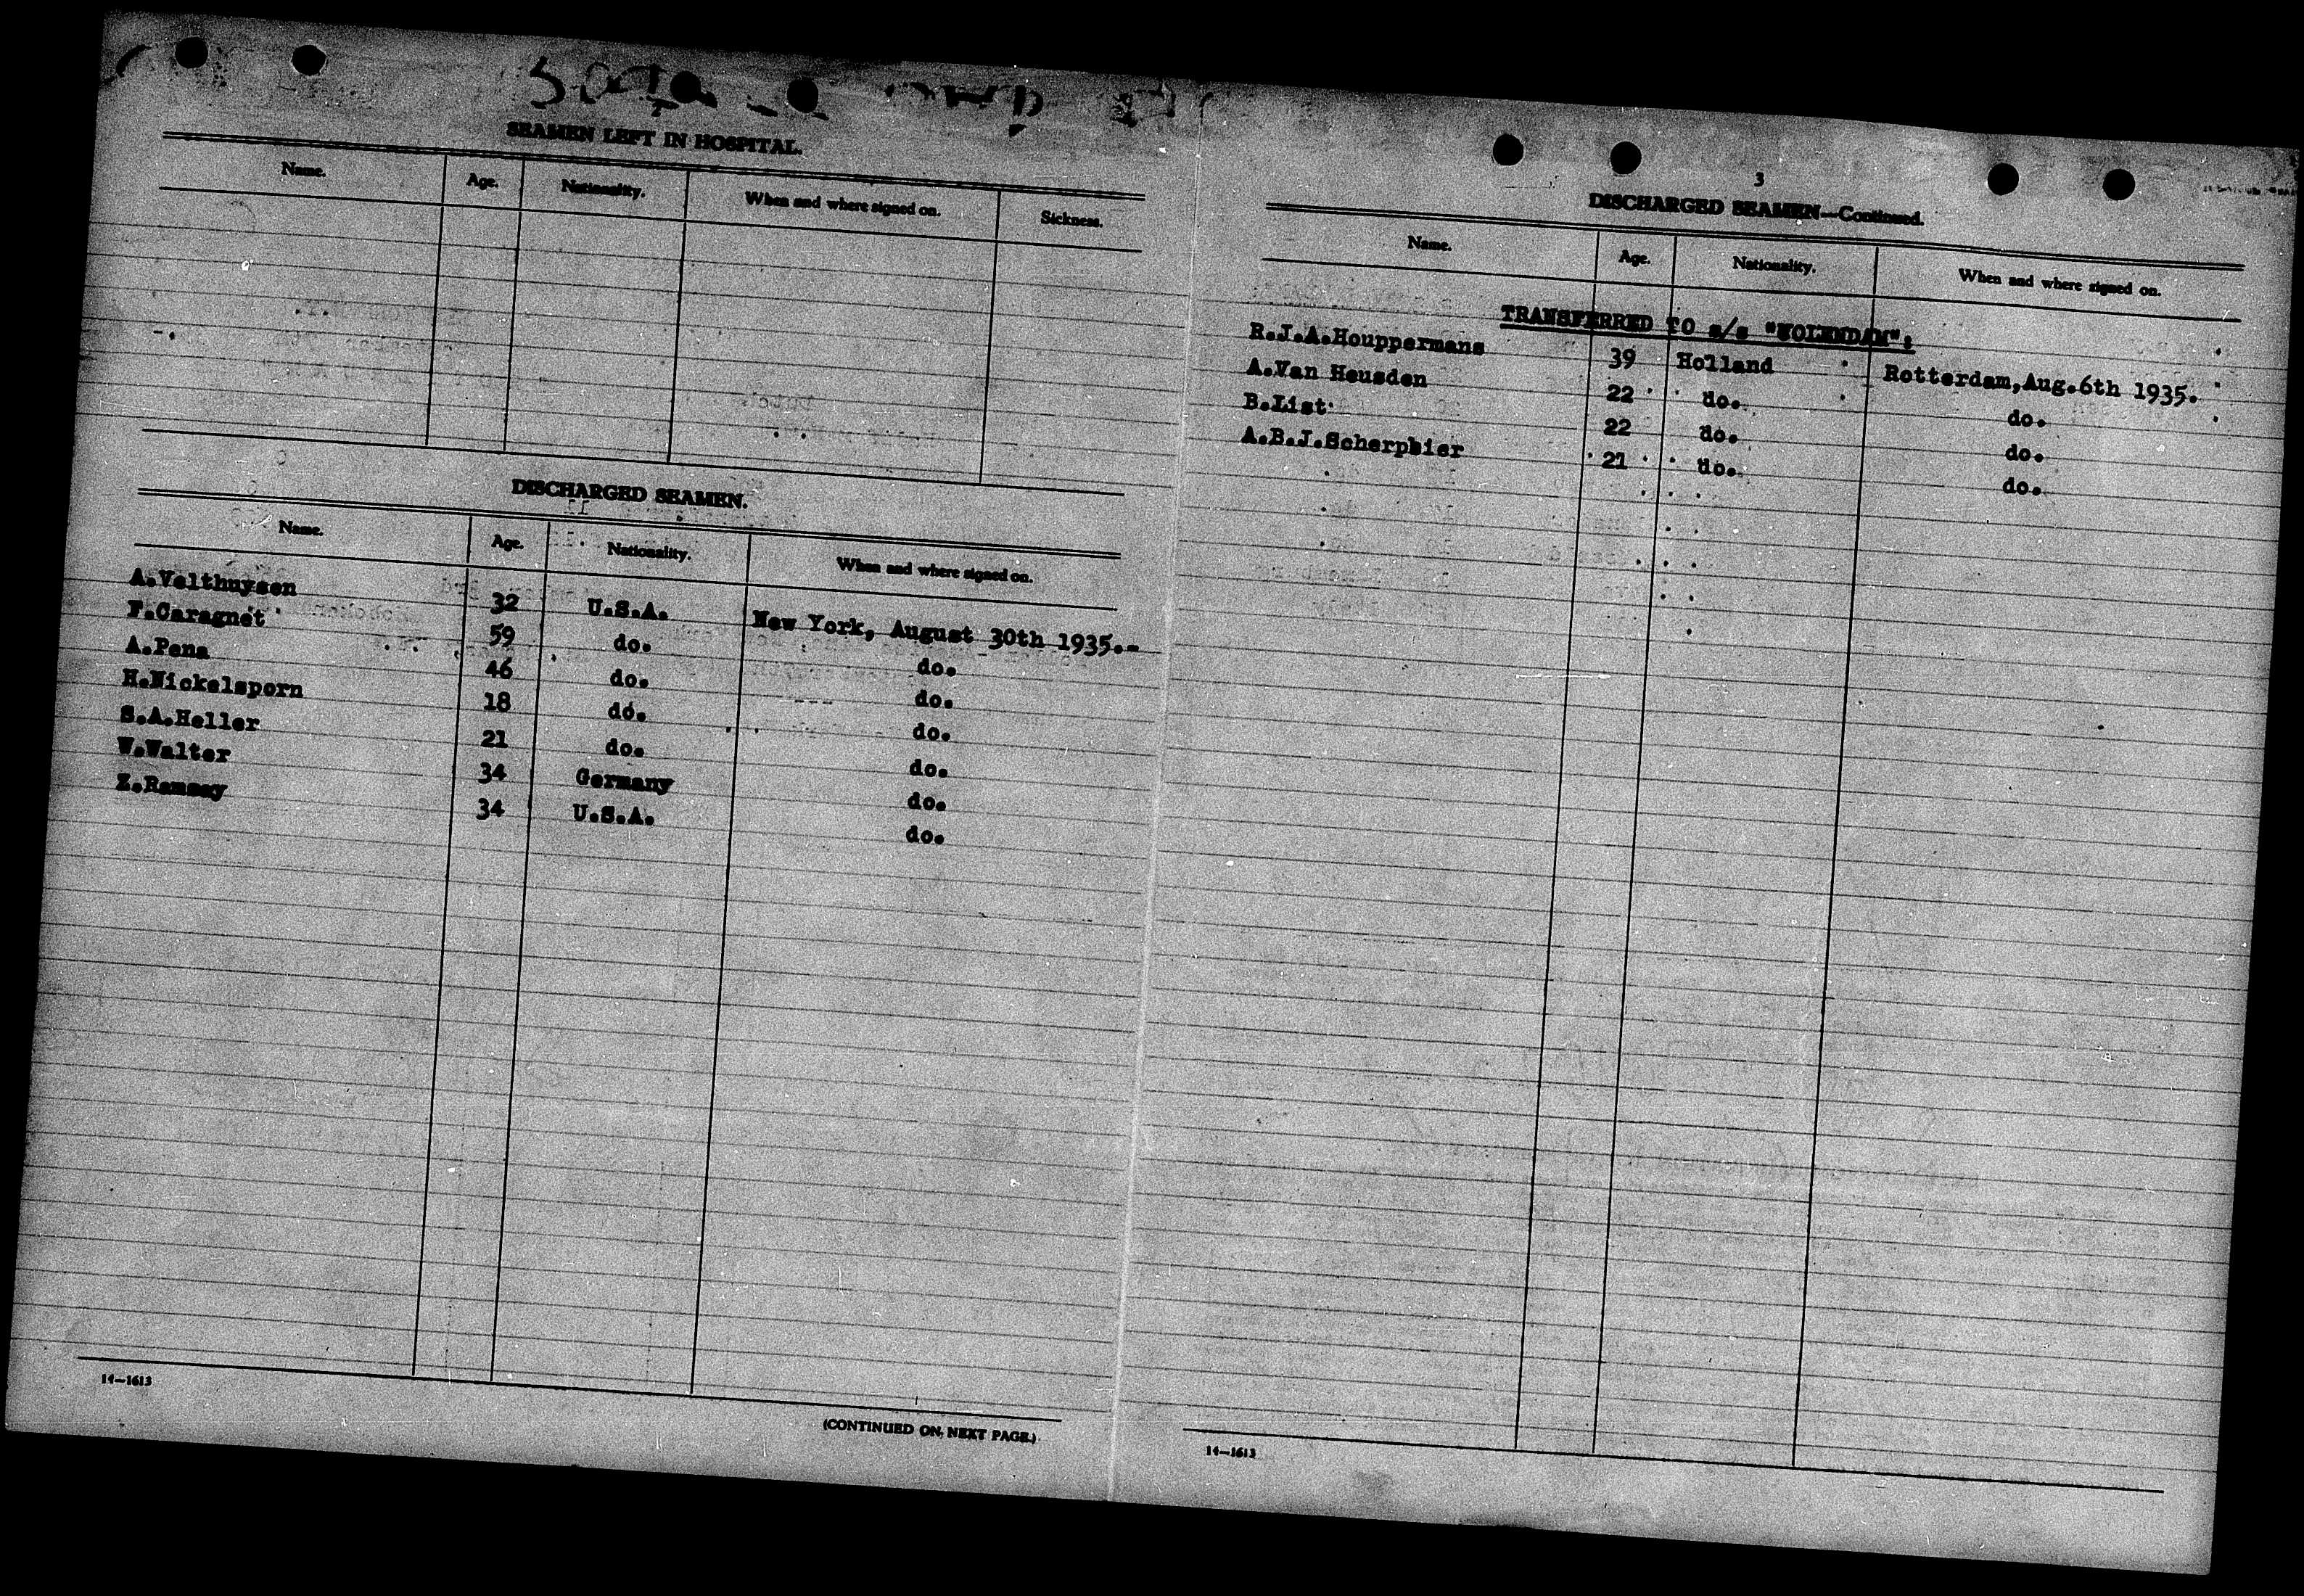 2
SEAMEN LEFT IN HOSPITAL.
Name. Age. Nationality. When and where signed on. Sickness.
DISCHARGED SEAMEN.
Name. Age. Nationality. When and where signed on.
A.Velthuysen 32 U.S.A. New York, August 30th 1935.-
F.Caragnet 59 do. do.
A.Pena 46 do. do.
H.Nickelsporn 18 do. do.
S.A.Heller 21 do. do.
W.Walter 34 Germany do.
Z.Ramsay 34 U.S.A. do.
14—1613
(CONTINUED ON NEXT PAGE.)
3
DISCHARGED SEAMEN—Continued.
Name. Age. Nationality. When and where signed on.
TRANSFERRED TO s/s "VOLENDAM":
R.J.A.Houppermans 39 Holland Rotterdam,Aug.6th 1935.
A.Van Heusden 22 do. do.
B.List 22 do. do.
A.B.J.Scherphier 21 do. do.
14—1613